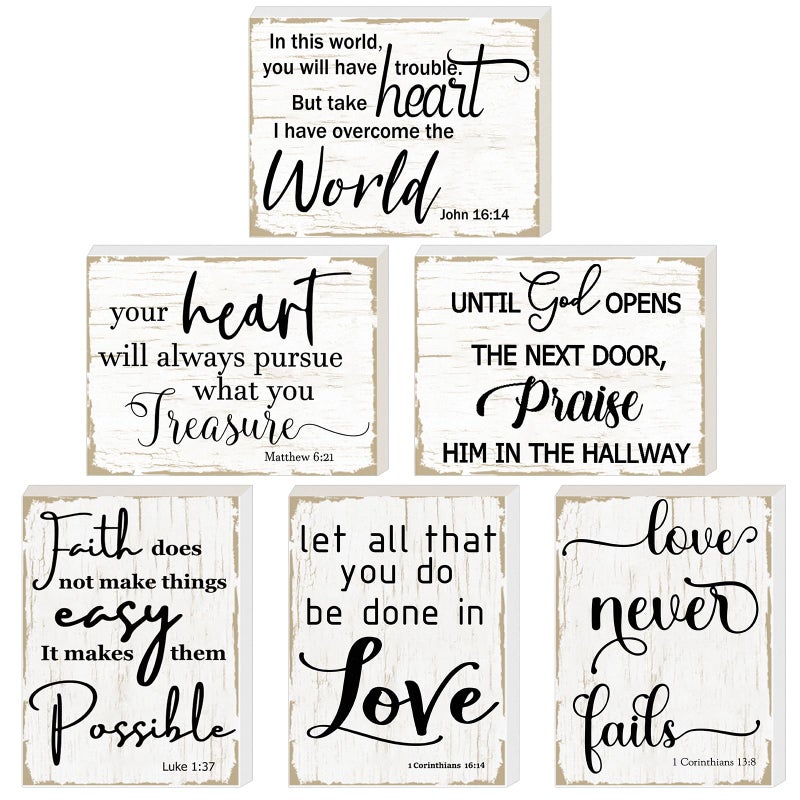 In this world,
you will have trouble.
But take heart
I have overcome the
World
John 16:14
your heart
will always pursue
what you
Treasure
Matthew 6:21
UNTIL God OPENS
THE NEXT DOOR,
Praise
HIM IN THE HALLWAY
Faith does
not make things
easy
It makes them
Possible
Luke 1:37
let all that
you do
be done in
Love
1 Corinthians 16:14
love
never
fails
1 Corinthians 13:8